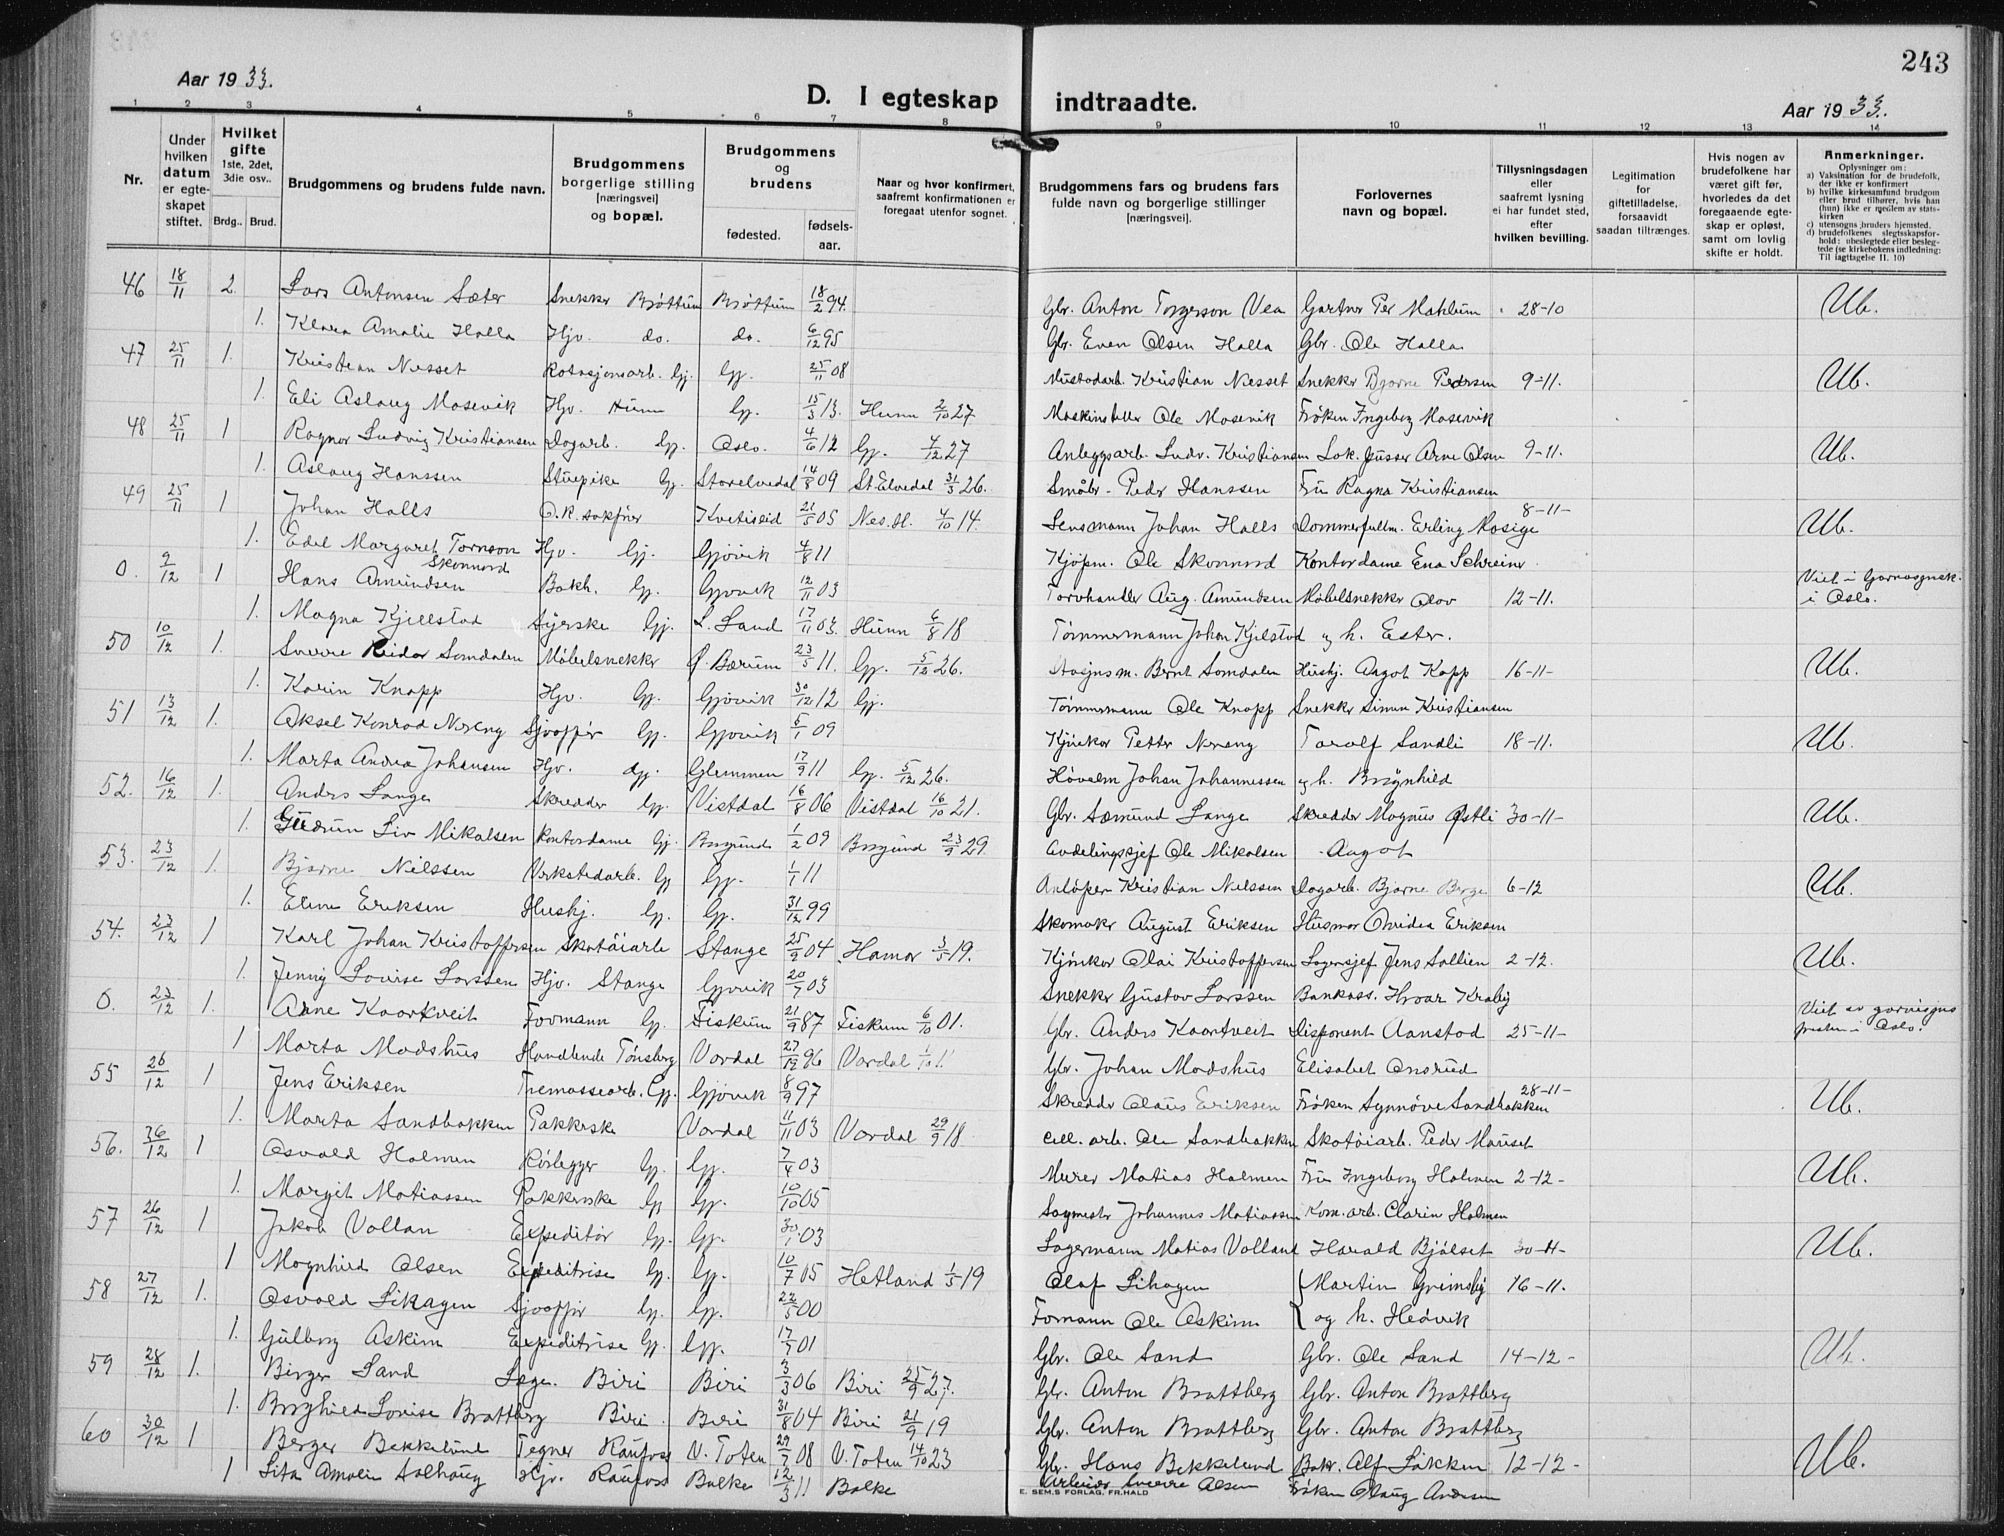 243
Aar 1933.
D. I egteskap indtraadte.
Aar 1933.
1 2 3 4 5 6 7 8 9 10 11 12 13 14
Nr.
Under hvilken datum er egteskapet stiftet.
Hvilket gifte 1ste, 2det, 3die osv..
Brdg.. Brud.
Brudgommens og brudens fulde navn.
Brudgommens borgerlige stilling [næringsvei] og bopæl.
Brudgommens og brudens
fødested. fødselsaar.
Naar og hvor konfirmert, saafremt konfirmationen er foregaat utenfor sognet.
Brudgommens fars og brudens fars fulde navn og borgerlige stillinger [næringsvei].
Forlovernes navn og bopæl.
Tillysningsdagen eller saafremt lysning ei har fundet sted, efter hvilken bevilling.
Legitimation for giftetilladelse, forsaavidt saadan tiltrænges.
Hvis nogen av brudefolkene har været gift før, hvorledes da det foregaaende egteskap er opløst, samt om lovlig skifte er holdt.
Anmerkninger.
Oplysninger om:
a) Vaksination for de brudefolk, der ikke er konfirmert
b) hvilke kirkesamfund brudgom eller brud tilhører, hvis han (hun) ikke er medlem av statskirken
c) utensogns bruders hjemsted.
d) brudefolkenes slegtsskapsforhold: ubeslegtede eller beslegtede (se kirkebokens indledning: Til iagttagelse II. 10)
46 18/11 2. Lars Antonsen Sæter Snekker Brøttum Brøttum 18/2 94. Gbr. Anton Torgerson Vea Gartner Per Mæhlum 28-10 Ub.
1. Klara Amalie Halla Hjv. do. do. 6/12 95 Gbr. Even Olsen Halla Gbr. Ole Halla
47 25/11 1. Kristian Nesset Rotasjonsarb. Gj. Gj. 25/11 08 Mustadarb. Kristian Nesset Snekker Bjarne Pedersen 9-11. Ub.
1. Eli Aslaug Mosevik Hjv. Hunn Gj. 15/3 13. Hunn 2/10 27 Maskinstiller Ole Mosevik Frøken Ingeborg Mosevik
48 25/11 1 Ragnar Ludvig Kristiansen Dagarb. Gj. Oslo. 4/6 12 Gj. 4/12 27 Anleggsarb. Ludv. Kristiansen Lok. pusser Arne Olsen 9-11. Ub.
1. Aslaug Hanssen Stuepike Gj. Storelvedal 14/8 09 St. Elvedal 31/3 26. Småbr. Peder Hanssen Fru Ragna Kristiansen
49 25/11 1 Johan Halls O.R. sakfører Kviteseid 21/5 05 Nes. H. 4/10 14. Lensmann Johan Halls Dommerfullm. Erling Mosige 8-11- Ub.
1. Edel Margaret Tornson Skonnord Hjv. Gj. Gjøvik 4/8 11 Kjøpm. Ole Skonnord Kontordame Ena Schreiner
0. 9/12 1 Hans Amundsen Bokh. Gj. Gjøvik 12/11 03 Torvhandler Aug. Amundsen Møbelsnekker Olav 12-11. Viet i Garnisonsk. i Oslo.
1. Magna Kjellstad Syerske Gj. S. Land 17/11 03. Hunn 6/8 18 Tømmermann Johan Kjelstad og h. Ester.
50 10/12 1. Sverre Reidar Somdalen Møbelsnekker Ø. Bærum 23/5 11. Gj. 5/12 26. Stasjnsm. Bernt Somdalen Hushj. Aagot Kapp 16-11- Ub.
1. Karin Knapp Hjv. Gj. Gjøvik 30/12 12 Gj. Tømmermann Ole Knapp Snekker Simen Kristiansen
51 13/12 1. Aksel Konrad Nereng Sjåffør Gj. Gjøvik 5/1 09 Kjørekar Petter Nereng Torolf Sandli 18-11. Ub.
1. Marta Andrea Johansen Hjv. Gj. Glemmen 17/9 11 Gj. 5/12 26. Høvelm. Johan Johannessen og h. Brynhild
52. 16/12 1. Anders Lange Skredder Gj. Vistdal 16/8 06 Vistdal 16/10 21. Gbr. Asmund Lange Skredder Magnus Østli 30-11- Ub.
1. Gudrun Liv Mikalsen Kontordame Gj. Borgund 1/2 09 Borgund 23/9 29 Avdelingssjef Ole Mikalsen Aagot
53. 23/12 1. Bjarne Nilssen Verkstedarb. Gj Gj. 1/1 11 Anløper Kristian Nilssen Dagarb. Bjarne Berge 6-12 Ub.
1. Eline Eriksen Hushj. Gj. Gj. 31/12 99 Skomaker August Eriksen Husmor Ovidea Eriksen
54. 23/12 1 Karl Johan Kristoffersen Skotøiarb Stange 25/9 04 Hamar 3/5 19. Kjørekar Olai Kristoffersen Lagersjef Jens Sollien 2-12. Ub.
1. Jenny Lovise Larssen Hjv. Stange Gjøvik 20/7 03 Snekker Gustav Larssen Bankass. Hroar Kraby
0. 23/12 1. Arne Kaartveit Formann Gj. Fiskum 21/9 87 Fiskum 6/10 01. Gbr. Anders Kaartveit Disponent Aanstad 25-11- Viet av garnisonspresten i Oslo.
1 Marta Madshus Handlende Tønsberg Vardal 27/12 96 Vardal 1/10 11. Gbr. Johan Madshus Elisabet Onsrud
55 26/12 1 Jens Eriksen Tremassearb. Gj. Gjøvik 8/9 97 Skredder Claus Eriksen Frøken Synnøve Sandbakken 28-11- Ub.
1. Marta Sandbakken Pakkerske Vardal 11/11 03 Vardal 29/9 18 Cell. arb. Ole Sandbakken Skotøiarb. Peder Mauset
56. 26/12 1 Osvald Holmen Rørlegger Gj. Gj. 7/4 03 Murer Matias Holmen Fru Ingeborg Holmen 2-12- Ub.
1. Margit Matiassen Pakkerske Gj Gj. 10/10 05 Sagmester Johannes Matiassen Kom. arb. Clarin Holmen
57 26/12 1 Jakob Vollan Expeditør Gj. Gj. 30/1 03 Lagermann Matias Volland Harald Bjølset 30-11- Ub.
1 Magnhild Olsen Expeditrise Gj. Gj. 10/7 05 Hetland 1/5 19 Olaf Lihagen Martin Grimsby 16-11.
58 27/12 1. Osvald Likagen Sjåffør Gj. Gj. 22/5 00 Formann Ole Askim og h. Hedvik
1. Gulborg Askim Expeditrise Gj. Gj. 17/7 01 Gbr. Ole Sand Gbr. Ole Sand 14-12- Ub.
59 28/12 1. Birger Sand Sage. Biri Biri 3/3 06 Biri 25/9 27. Gbr. Anton Brattberg Gbr. Anton Brattberg
1. Borghild Lovise Brattberg Biri. Biri 31/8 04 Biri 21/9 19 Gbr. Anton Brattberg Gbr. Anton Brattberg
60 30/12 1 Berger Bekkelund Tegner Raufoss V. Toten 29/7 08 V. Toten 14/10 23 Gbr. Hans Bekkelund Bakr. Alf Løkken 12-12- Ub.
1 Lita Amalie Aalhaug Hjv. Raufoss Balke 12/3 11 Balke Arbeider Sverre Olsen Frøken Olaug Andersen
E. SEM.S FORLAG, FR.HALD